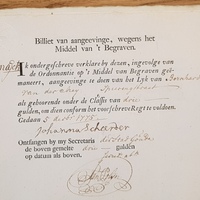 Billiet van aangeevinge, wegens het
Middel van 't Begraven.
Ik ondergeschreve verklare by dezen, ingevolge van
de Ordonnantie op 't Middel van Begraven gë-
maneert, aangeevinge te doen van het Lyk van Bernhard
van der
als gehoorende onder de Classis van drie
gulden, om diën conform het voorschreve Regt te voldoen.
Gedaan 5 1775
Johanna Scheerder
Ontfangen by my Secretaris
de boven gemelte drie gulden
op datum als boven,